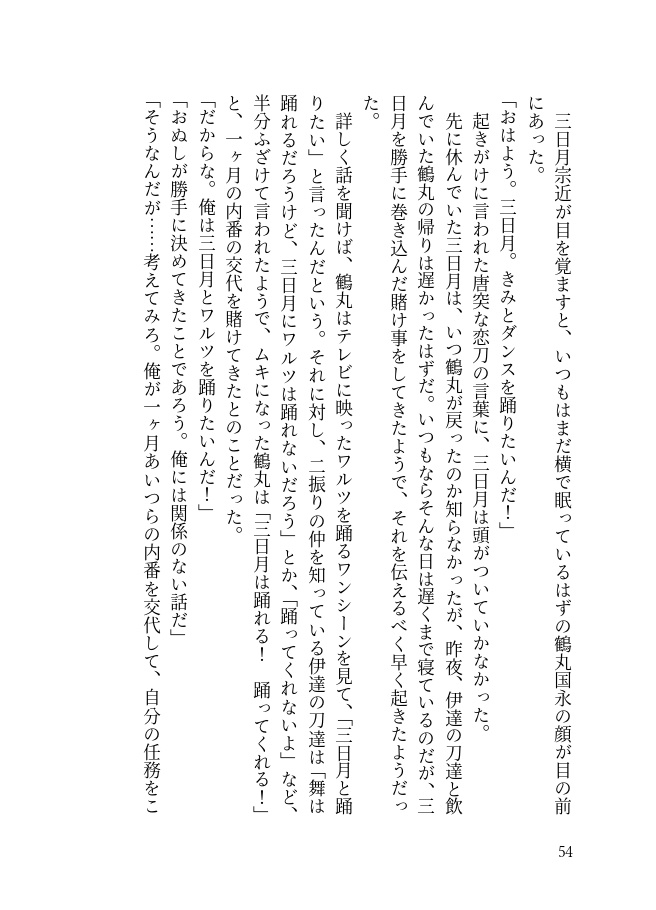 三日月宗近が目を覚ますと、いつもはまだ横で眠っているはずの鶴丸国永の顔が目の前
にあった。
「おはよう。三日月。きみとダンスを踊りたいんだ！」
　起きがけに言われた唐突な恋刀の言葉に、三日月は頭がついていかなかった。
　先に休んでいた三日月は、いつ鶴丸が戻ったのか知らなかったが、昨夜、伊達の刀達と飲
んでいた鶴丸の帰りは遅かったはずだ。いつもならそんな日は遅くまで寝ているのだが、三
日月を勝手に巻き込んだ賭け事をしてきたようで、それを伝えるべく早く起きたようだっ
た。
　詳しく話を聞けば、鶴丸はテレビに映ったワルツを踊るワンシーンを見て、「三日月と踊
りたい」と言ったんだという。それに対し、二振りの仲を知っている伊達の刀達は「舞は
踊れるだろうけど、三日月にワルツは踊れないだろう」とか、「踊ってくれないよ」など、
半分ふざけて言われたようで、ムキになった鶴丸は「三日月は踊れる！　踊ってくれる！」
と、一ヶ月の内番の交代を賭けてきたとのことだった。
「だからな。俺は三日月とワルツを踊りたいんだ！」
「おぬしが勝手に決めてきたことであろう。俺には関係のない話だ」
「そうなんだが……考えてみろ。俺が一ヶ月あいつらの内番を交代して、自分の任務をこ
54